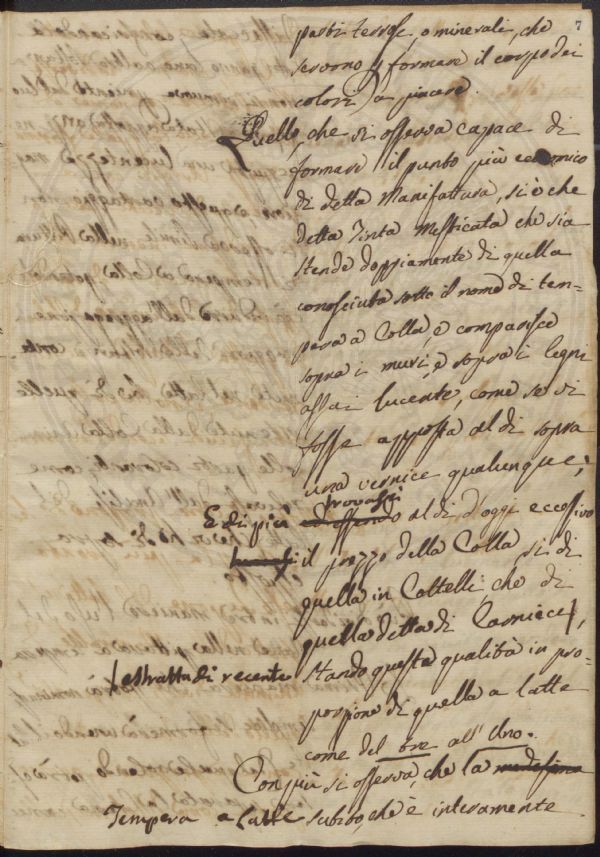 7
parti terrose, o minerali, che
servono p formare il corpo dei
colori) a piacere.
Quello, che si osserva capace di
formare il punto più economico
di detta Manifattura, si è che
detta Tinta Mesticata che sia
stende doppiamente di quella
conosciuta sotto il nome di tem-
pera a Colla, e comparisce
sopra i muri, e sopra i legni
assai lucente, come se si
fosse apposta al di sopra
una vernice qualunque;
E di più trovasi al dì d'oggi eccessivo
il prezzo della Colla, sì di
quella in Coltelli, che di
quella detta di Carniccj,
estratta di recente
stando queste qualità in pro-
porzione di quella a latte
come del tre all' Otto.
Con più si osserva, che la medesima
Tempera a Latte subito, che è interamente